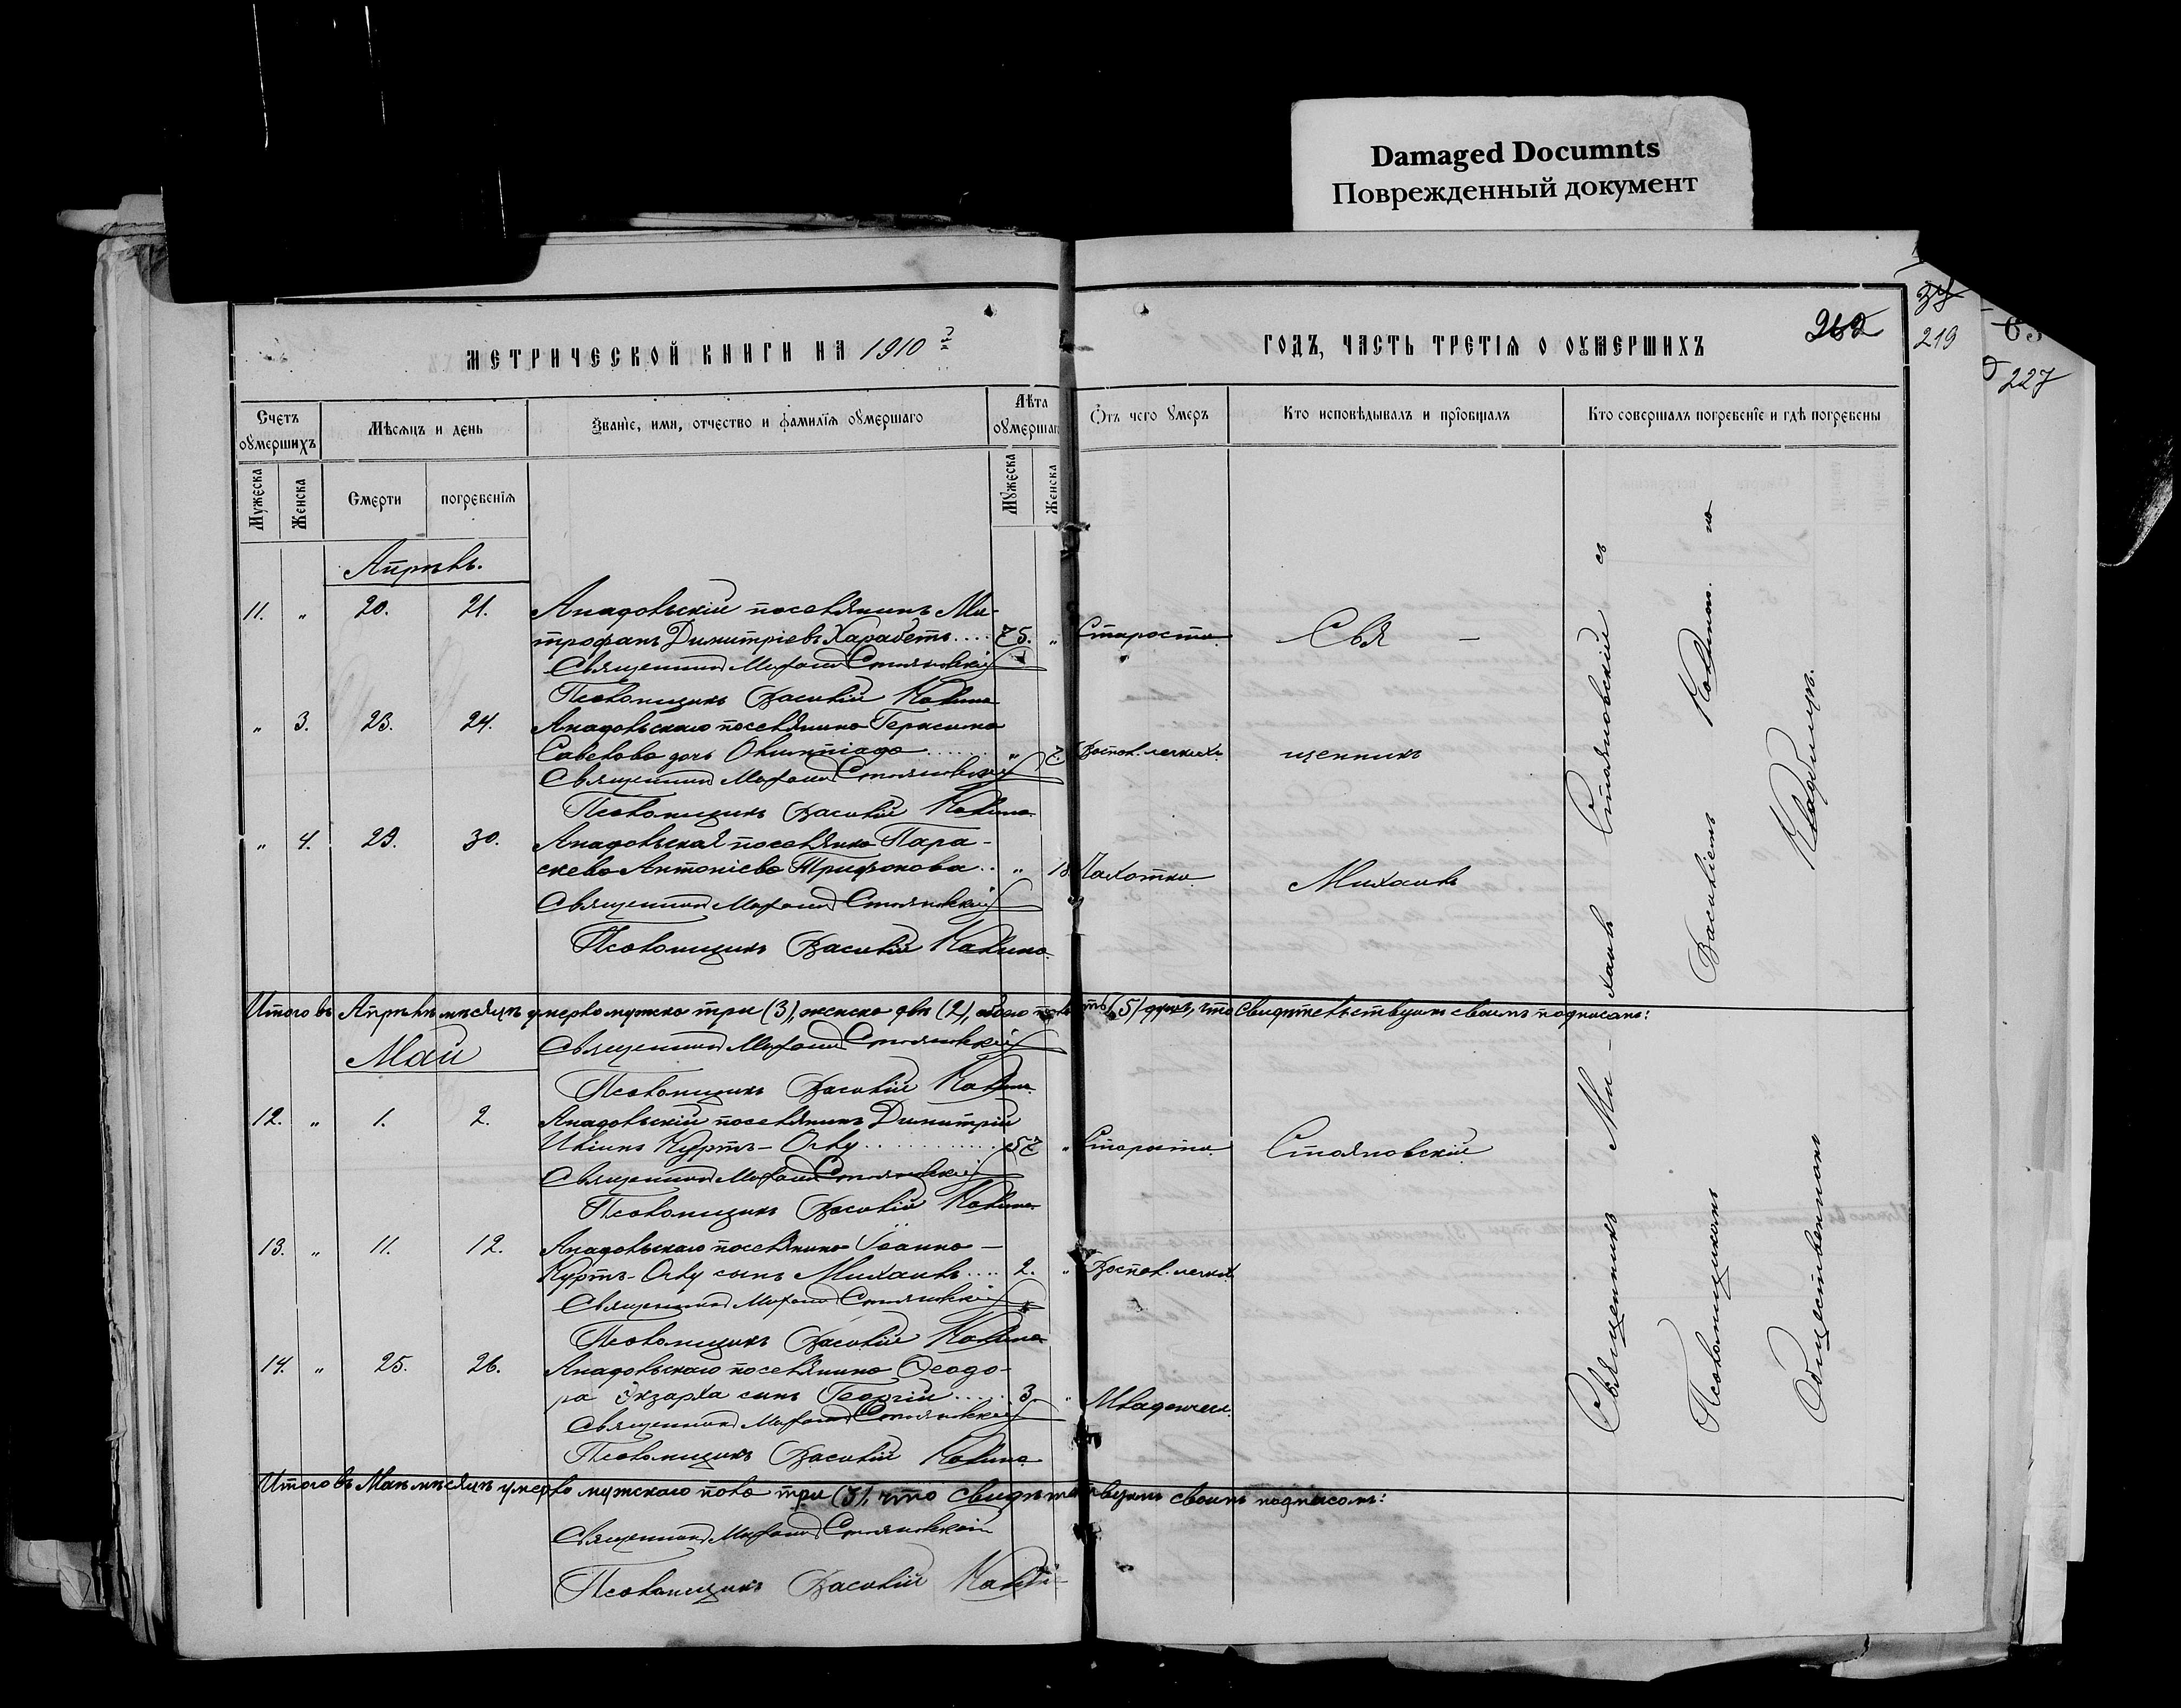 Damaged Documnts
Поврежденный документ
МЕТРИЧЕСКОЙ КНИГИ НА 1910й
ГОДЪ, ЧАСТЬ ТРЕТІЯ О ОУМЕРШИХЪ
262
34
219
227
Счетъ оумершихъ
Мѣсяцъ и день
Званіе, имя, отчество и фамилія оумершаго
Лѣта оумершаго
Отъ чего умеръ
Кто исповѣдывалъ и пріобщалъ
Кто совершалъ погребеніе и гдѣ погребены
Мужеска
Женска
Смерти
погребенія
Мужеска
Женска
Апрѣль.
11. " 20. 21. Анадольскій поселянинъ Ми-
трофанъ Димитріевъ Харабетъ.... 75. " Старости. Свя -
Священникъ Михаилъ Стояновскій
Псаломщикъ Василій Калина
" 3. 23. 24. Анадольскаго поселянина Герасима
Савелова дочь Олимпіада........ " 7. Воспал. легкихъ. щенникъ
Священникъ Михаилъ Стояновскій
Псаломщикъ Василій Калина
" 4. 29. 30. Анадольская поселянка Пара-
скева Антоніева Трифонова.. " 18 Чахотки. Михаилъ
Священникъ Михаилъ Стояновскій
Псаломщикъ Василій Калина
Итого въ Апрѣлѣ мѣсяцѣ умерло мужска три (3), женска двѣ (2), обоего пять (5) душъ, что свидѣтельствуемъ своимъ подписомъ:
Священникъ Михаилъ Стояновскій
Май
Псаломщикъ Василій Калина
12. " 1. 2. Анадольскій поселянинъ Димитрій
Иліинъ Куртъ-Оглу............. 57 " Старости. Стояновскій
Священникъ Михаилъ Стояновскій
Псаломщикъ Василій Калина
13. " 11. 12. Анадольскаго поселянина Іоанна
Куртъ-Оглу сынъ Михаилъ.... 2. " Воспал. легких
Священникъ Михаилъ Стояновскій
Псаломщикъ Василій Калина
14. " 25. 26. Анадольскаго поселянина Ѳеодо-
ра Экзарха сынъ Георгій...... 3. " Младенческ.
Священникъ Михаилъ Стояновскій
Псаломщикъ Василій Калина
Итого въ Маѣ мѣсяцѣ умерло мужскаго пола три (3), что свидѣтельствуемъ своимъ подписомъ:
Священникъ Михаилъ Стояновскій
Псаломщикъ Василій Калина
Священникъ Ми-хаилъ Стояновскій съ
Псаломщикомъ Василіемъ Калиною на
Общественномъ Кладбищѣ.